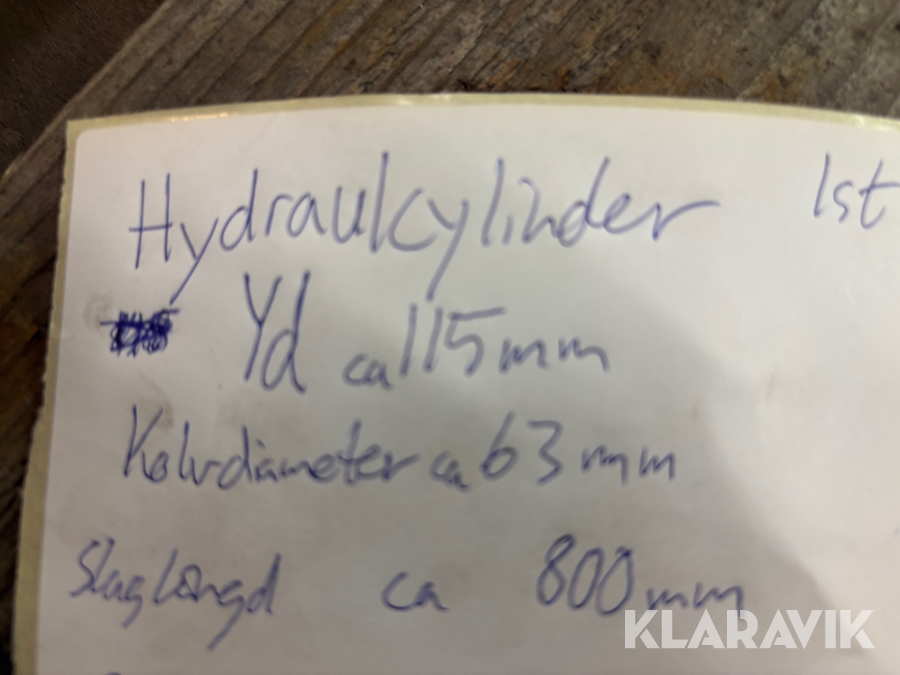 Hydraulcylinder 1st
Yd ca 115mm
Kolvdiameter ca 63mm
Slaglängd ca 800mm
KLARAVIK